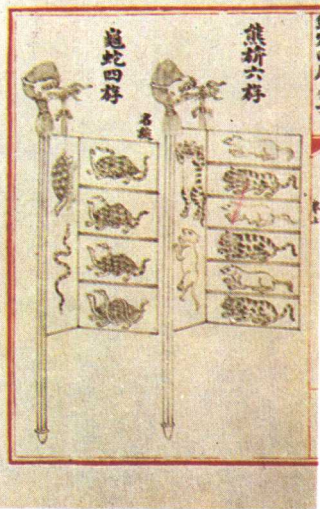 熊旂六斿
龜蛇四斿
名旐